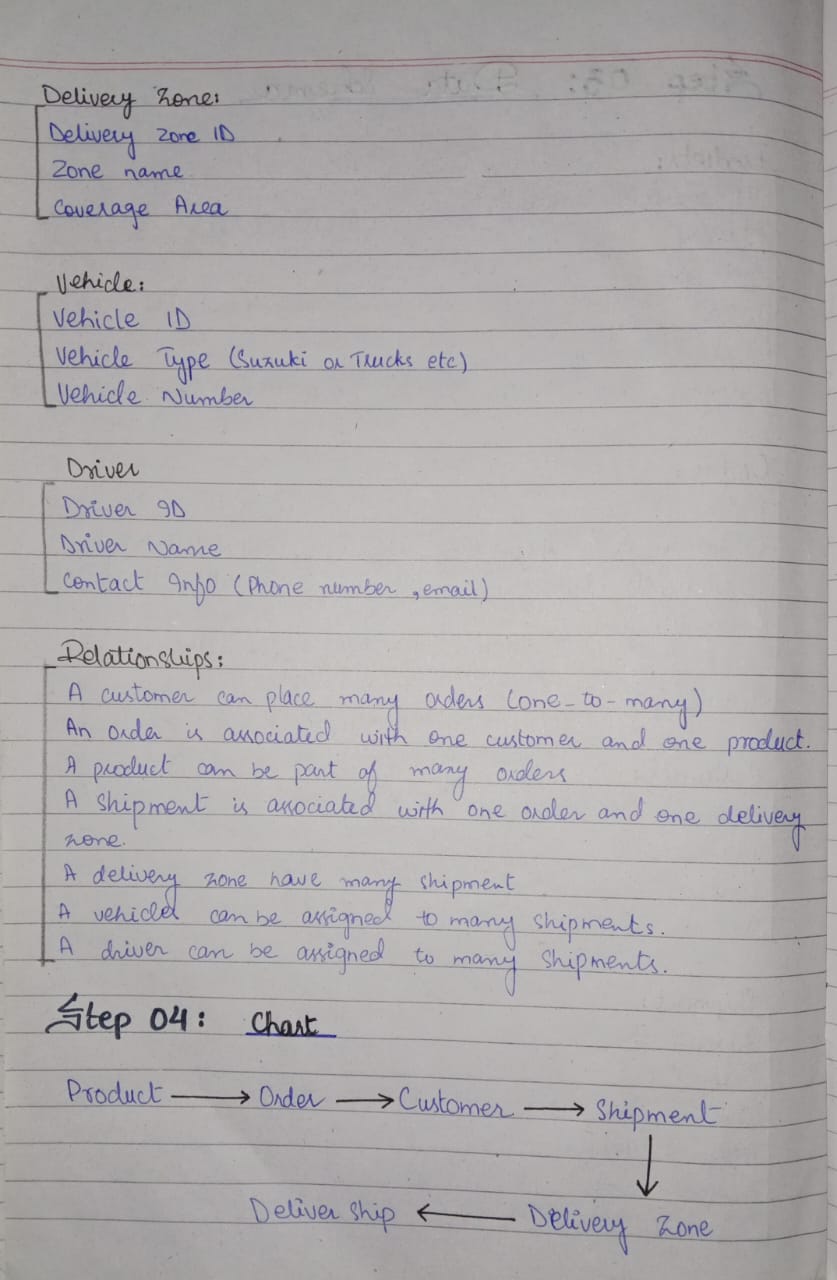 Delivery Zone:
Delivery Zone ID
Zone name
Coverage Area
Vehicle:
Vehicle ID
Vehicle Type (Suzuki or Trucks etc)
Vehicle Number
Driver
Driver ID
Driver Name
Contact Info (Phone number, email)
Relationships:
A customer can place many orders (one-to-many)
An order is associated with one customer and one product.
A product can be part of many orders
A shipment is associated with one order and one delivery
zone.
A delivery zone have many shipment
A vehicled can be assigned to many shipments.
A driver can be assigned to many shipments.
Step 04: Chart
Product → Order → Customer → Shipment
Deliver ship ← Delivery Zone